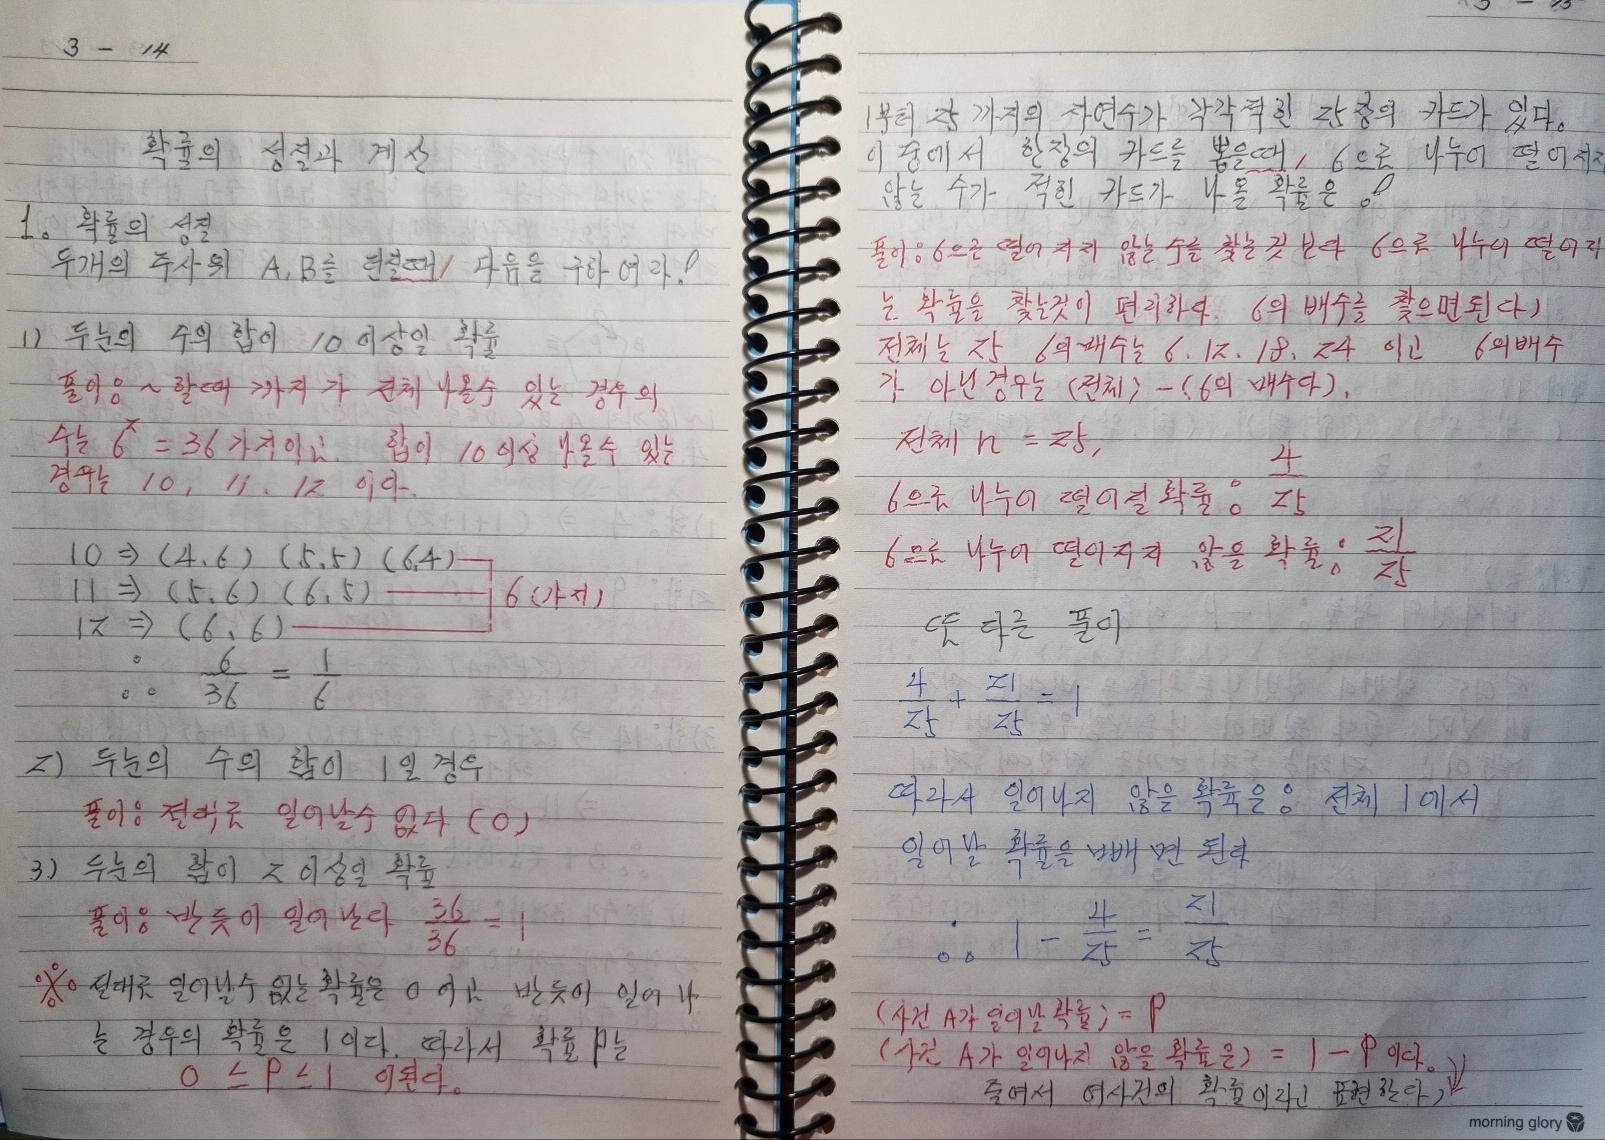 3 - 14
확률의 성질과 계산
1. 확률의 성질
두개의 주사위 A, B를 던질때, 다음을 구하여라!
1) 두눈의 수의 합이 10 이상일 확률
풀이: ~ 할때 까지가 전체 나올수 있는 경우의
수는 6² = 36 가지이고. 합이 10 이상 나올수 있는
경우는 10, 11. 12 이다.
10 ⇒ (4,6) (5,5) (6,4)
11 ⇒ (5,6) (6,5) 6 (가지)
12 ⇒ (6,6)
∴ 6/36 = 1/6
2) 두눈의 수의 합이 1일 경우
풀이: 절대로 일어날수 없다 (0)
3) 두눈의 합이 2 이상일 확률
풀이: 반듯이 일어난다 36/36 = 1
※ 절대로 일어날수 없는 확률은 0 이고 반듯이 일어나
는 경우의 확률은 1이다. 따라서 확률 P는
0 ≤ P ≤ 1 이된다.
1부터 25 까지의 자연수가 각각적힌 25장의 카드가 있다.
이 중에서 한장의 카드를 뽑을때, 6으로 나누어 떨어지지
않는 수가 적힌 카드가 나올 확률은?
풀이: 6으로 떨어지지 않는 수를 찾는것 보다 6으로 나누어 떨어지
는 확률을 찾는것이 편리하다. 6의 배수를 찾으면된다)
전체는 25 6의배수는 6. 12. 18. 24 이고 6의배수
가 아닌경우는 (전체) - (6의 배수다).
전체 n = 25,
6으로 나누어 떨어질 확률: 4/25
6으로 나누어 떨어지지 않을 확률: 21/25
또 다른 풀이
4/25 + 21/25 = 1
따라서 일어나지 않을 확률은: 전체 1에서
일어날 확률을 빼면 된다
∴ 1 - 4/25 = 21/25
(사건 A가 일어날 확률) = P
(사건 A가 일어나지 않을 확률은) = 1 - P 이다.
줄여서 여사건의 확률이라고 표현한다)
morning glory